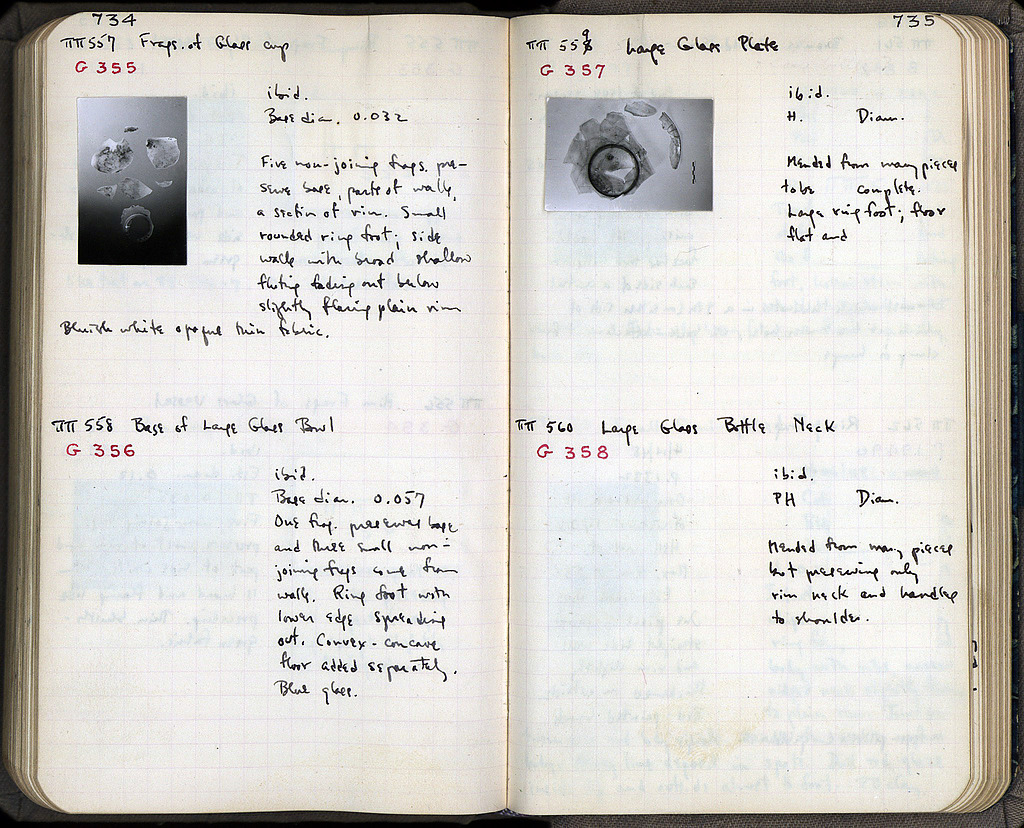 734
ΠΠ 557 Frags. of Glass cup
G 355
ibid.
Base diam. 0.032
Five non-joining frags. pre-
serve base, parts of walls,
a section of rim. Small
rounded ring foot; side
walls with broad shallow
fluting fading out below
slightly flaring plain rim
Bluish white opaque thin fabric.
ΠΠ 558 Base of Large Glass Bowl
G 356
ibid.
Base diam. 0.057
One frag. preserves base
and three small non-
joining frags come from
walls. Ring foot with
lower edge spreading
out. Convex-concave
floor added separately.
Blue glass.
735
ΠΠ 559 Large Glass Plate
G 357
ibid.
H. Diam.
Mended from many pieces
to be complete.
Large ring foot; floor
flat and
ΠΠ 560 Large Glass Bottle Neck
G 358
ibid.
PH Diam.
Mended from many pieces
but preserving only
rim neck and handles
to shoulder.